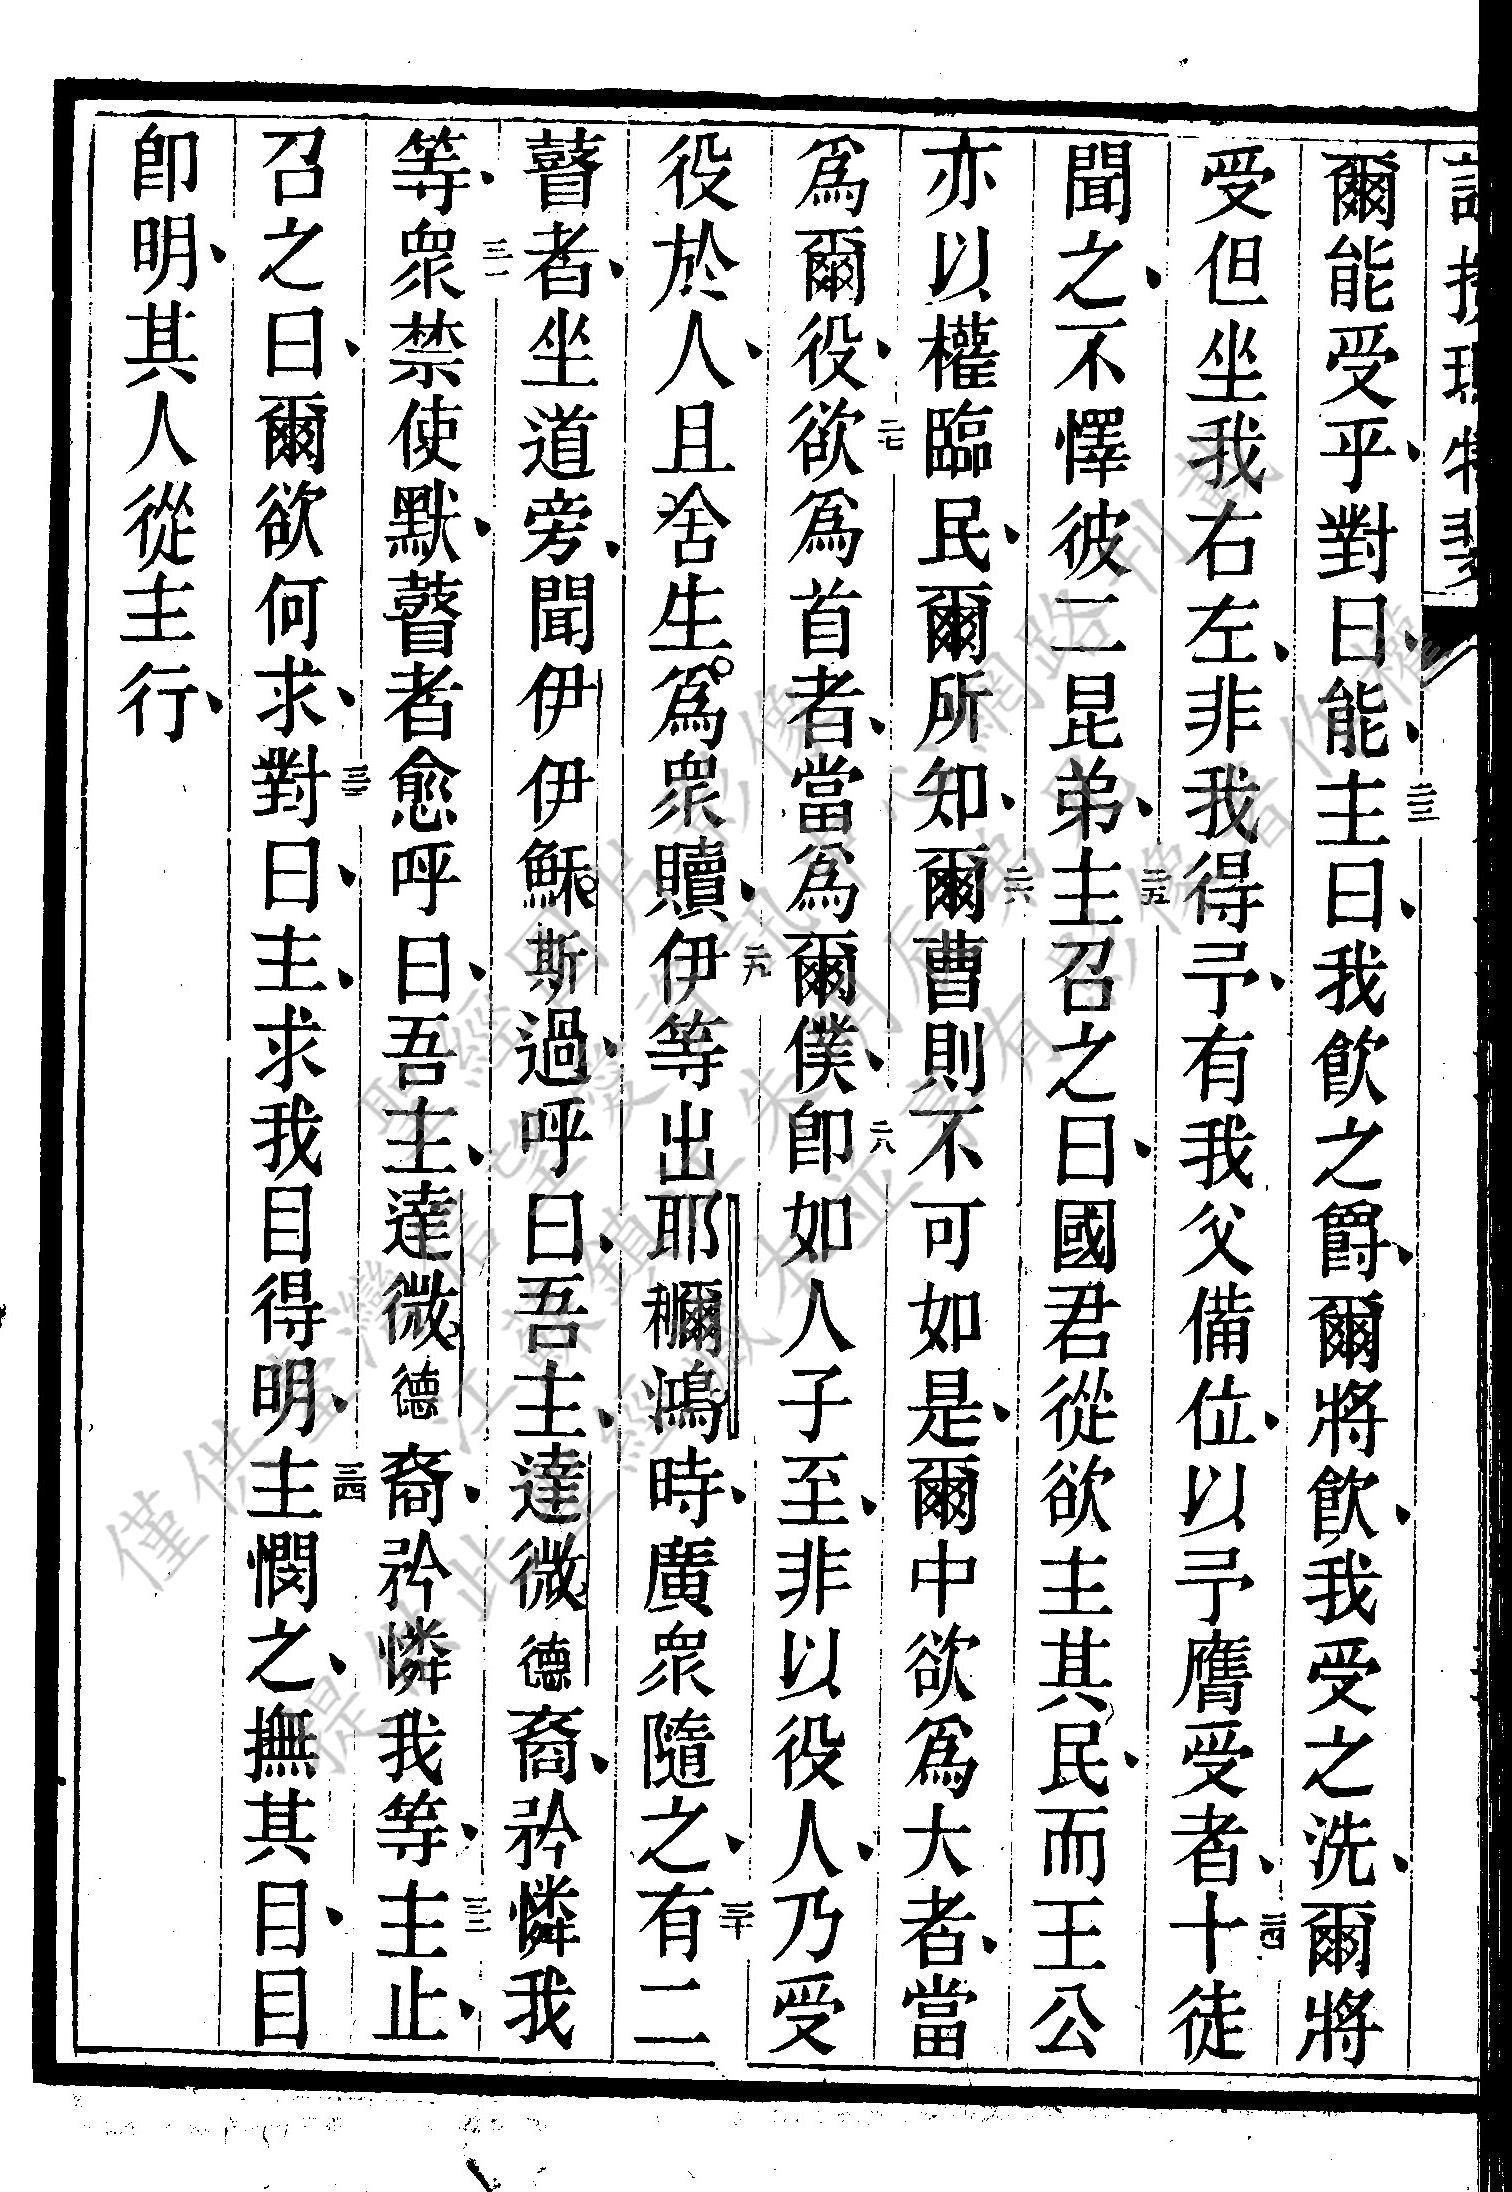 爾能受乎、對曰、能、二三主曰、我飲之爵、爾將飲、我受之洗、爾將
受但坐我右左、非我得予、有我父備位、以予膺受者、二四十徒
聞之、不懌彼二昆弟、二五主召之曰、國君從欲主其民、而王公
亦以權臨民、爾所知、二六爾曹則不可如是、爾中欲爲大者、當
爲爾役、二七欲爲首者、當爲爾僕、二八卽如人子至、非以役人、乃受
役於人、且舍生爲衆贖、二九伊等出耶穪鴻時、廣衆隨之、三十有二
瞽者、坐道旁、聞伊伊穌斯過、呼曰、吾主、達微德裔、矜憐我
等、三一衆禁使默、瞽者愈呼曰、吾主、達微德裔、矜憐我等、三二主止、
召之曰、爾欲何求、三三對曰、主、求我目得明、三四主憫之、撫其目、目
卽明、其人從主行、